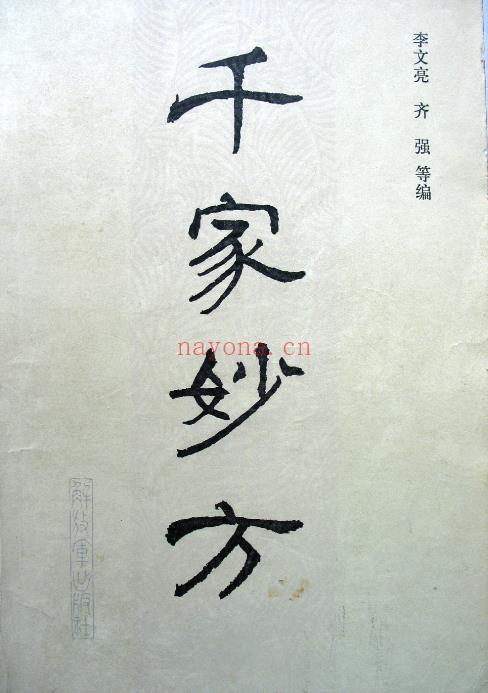 李文亮 齐强 等编
千家妙方
nayona.cn
解放军出版社